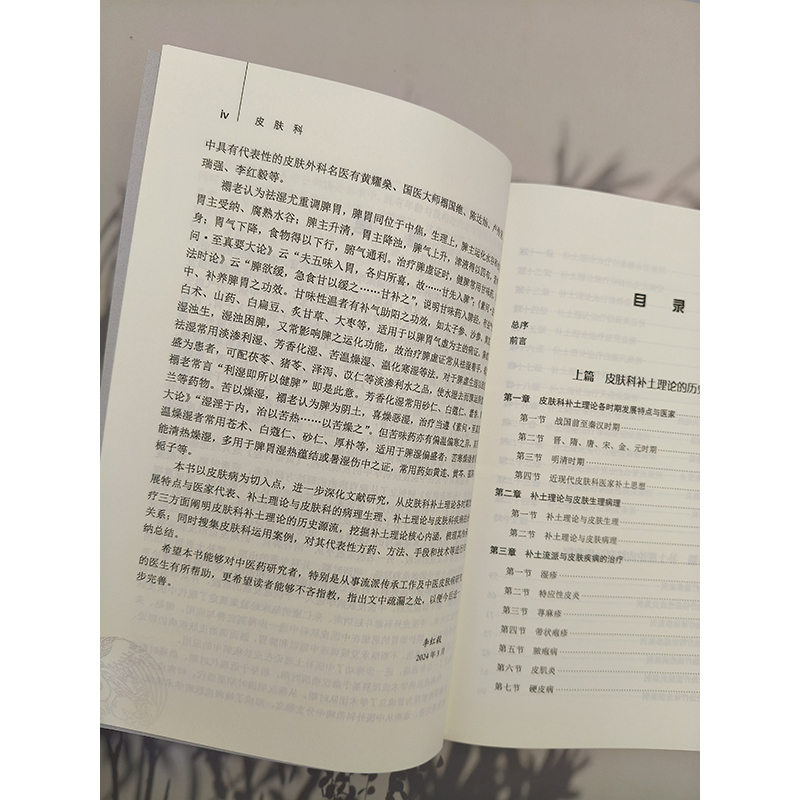 iv 皮肤科
中具有代表性的皮肤外科名医有黄耀燊、国医大师禤国维、陈达灿、卢
瑞强、李红毅等。
禤老认为祛湿尤重调脾胃，脾胃同位于中焦，生理上，脾主运化水谷
胃主受纳、腐熟水谷；脾主升清，胃主降浊，脾气上升，津液得以四布，
身；胃气下降，食物得以下行，腑气通利。治疗脾虚证时，健脾常用甘味药。
问·至真要大论》云“夫五味入胃，各归所喜，故……甘先入脾”，《素问·
法时论》云“脾欲缓，急食甘以缓之……甘补之”，说明甘味药入脾经，
中、补养脾胃之功效。甘味性温者有补气助阳之功效，如太子参、沙参、
白术、山药、白扁豆、炙甘草、大枣等，适用于以脾胃气虚为主的病证。
湿浊生，湿浊困脾，又常影响脾之运化功能，故治疗脾虚证常从祛湿着手，
祛湿常用淡渗利湿、芳香化湿、苦温燥湿、温化寒湿等法。对于脾虚生湿
盛为患者，可配茯苓、猪苓、泽泻、苡仁等淡渗利水之品，使水湿土而脾运
禤老常言“利湿即所以健脾”即是此意。芳香化湿常用砂仁、白蔻仁、藿香、
兰等药物。苦以燥湿，禤老认为脾为阴土，喜燥恶湿，治疗当遵《素问·至真
大论》“湿淫于内，治以苦热……以苦燥之”。但苦味药亦有偏温偏寒之异，
温燥湿者常用苍术、白蔻仁、砂仁、厚朴等，适用于脾湿偏盛者；苦寒燥湿
能清热燥湿，多用于脾胃湿热蕴结或暑湿伤中之证，常用药如黄连、黄芩、
栀子等。
本书以皮肤病为切入点，进一步深化文献研究，从皮肤科补土理论各时期
展特点与医家代表、补土理论与皮肤科的病理生理、补土理论与皮肤科疾病的
疗三方面阐明皮肤科补土理论的历史源流，挖掘补土理论核心内涵，梳理其
关系；同时搜集皮肤科运用案例，对其代表性方药、方法、手段和技术等进行
纳总结。
希望本书能够对中医药研究者，特别是从事流派传承工作及中医皮肤病研究
的医生有所帮助，更希望读者能够不吝指教，指出文中疏漏之处，以便今后进一
步完善。
李红毅
2024年5月
目录
总序
前言
上篇 皮肤科补土理论的历史
第一章 皮肤科补土理论各时期发展特点与医家
第一节 战国前至秦汉时期
第二节 晋、隋、唐、宋、金、元时期
第三节 明清时期
第四节 近现代皮科医家补土思想
第二章 补土理论与皮肤生理病理
第一节 补土理论与皮肤生理
第二节 补土理论与皮肤病理
第三章 补土流派与皮肤疾病的治疗
第一节 湿疹
第二节 特应性皮炎
第三节 荨麻疹
第四节 带状疱疹
第五节 脓疱病
第六节 皮肌炎
第七节 硬皮病